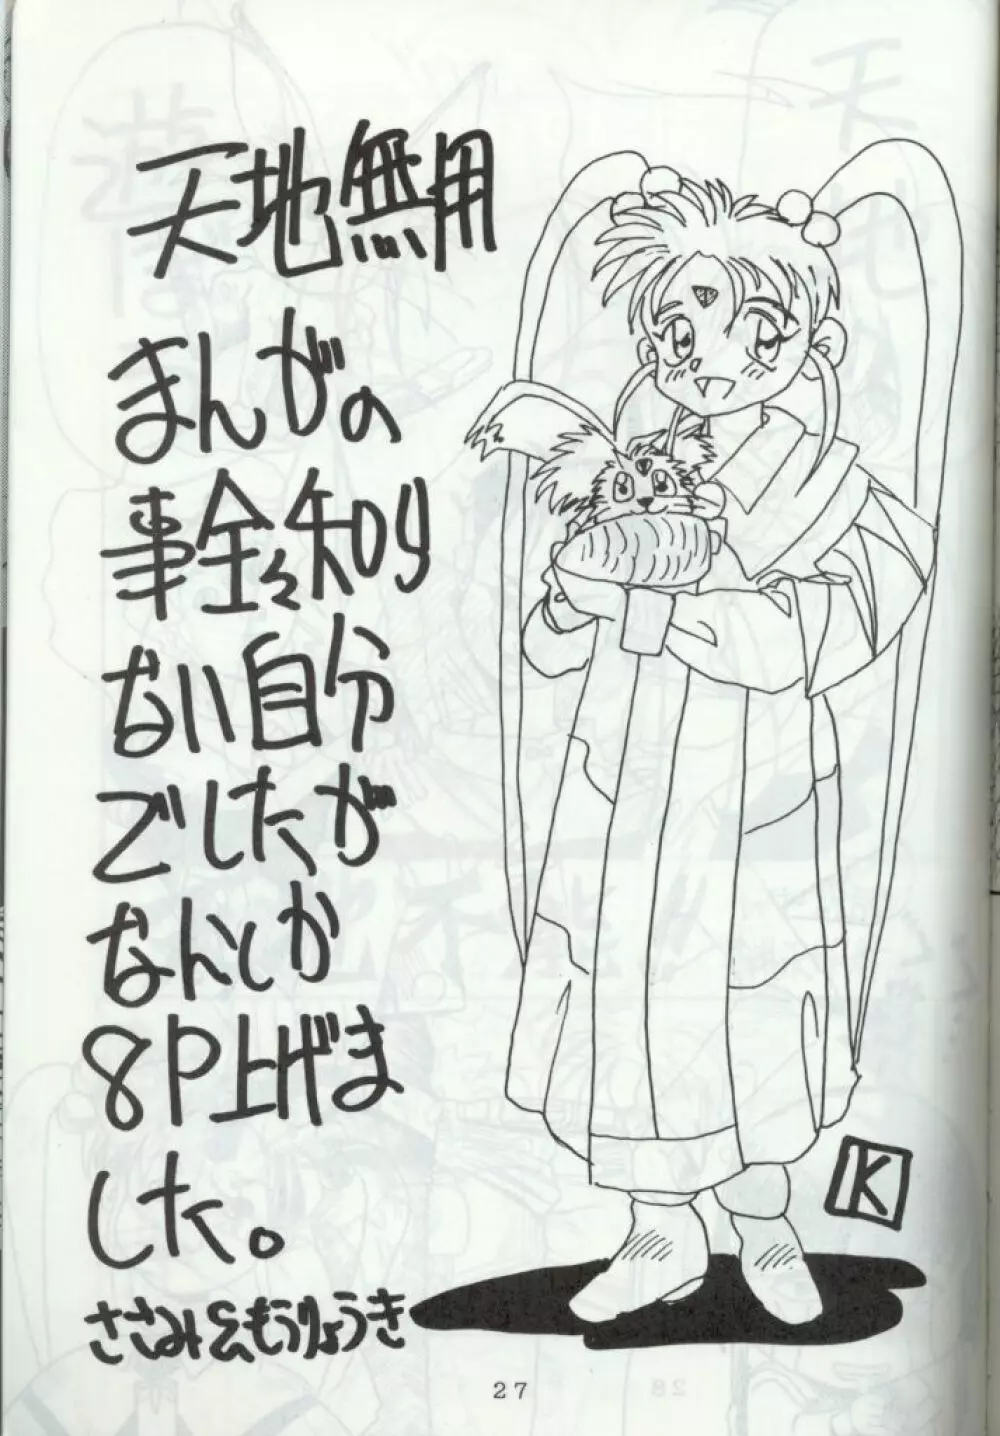 天地無用
まんがの
事全々知ら
ない自分
でしたが
なんとか
8P上げま
した。
ささみ&もうりょうき
K
27